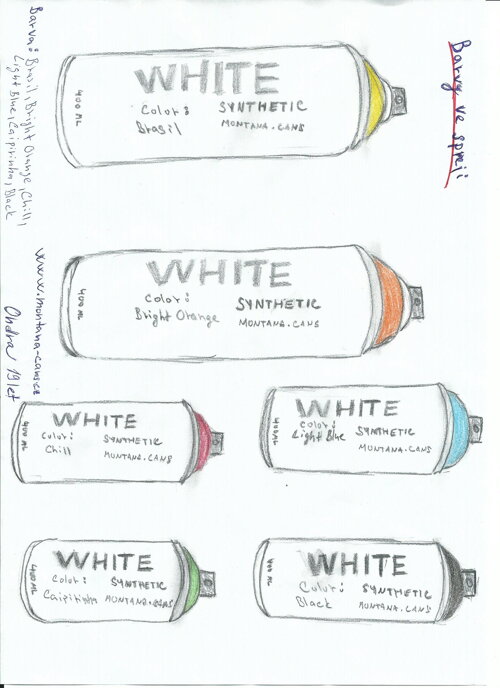 Barvy ve spreji:
WHITE
Color:
Brasil
SYNTHETIC
MONTANA.CANS
400 ML
WHITE
Color:
Bright Orange
SYNTHETIC
MONTANA.CANS
400 ML
WHITE
Color:
Chill
SYNTHETIC
MONTANA.CANS
400 ML
WHITE
Color:
Light Blue
SYNTHETIC
MONTANA.CANS
400 ML
WHITE
Color:
Caipirinha
SYNTHETIC
MONTANA.CANS
400 ML
WHITE
Color:
Black
SYNTHETIC
MONTANA.CANS
Barva: Brasil, Bright Orange, Chill,
Light Blue, Caipirinha, Black
www.montana-cans.cz
Ondra 19 let